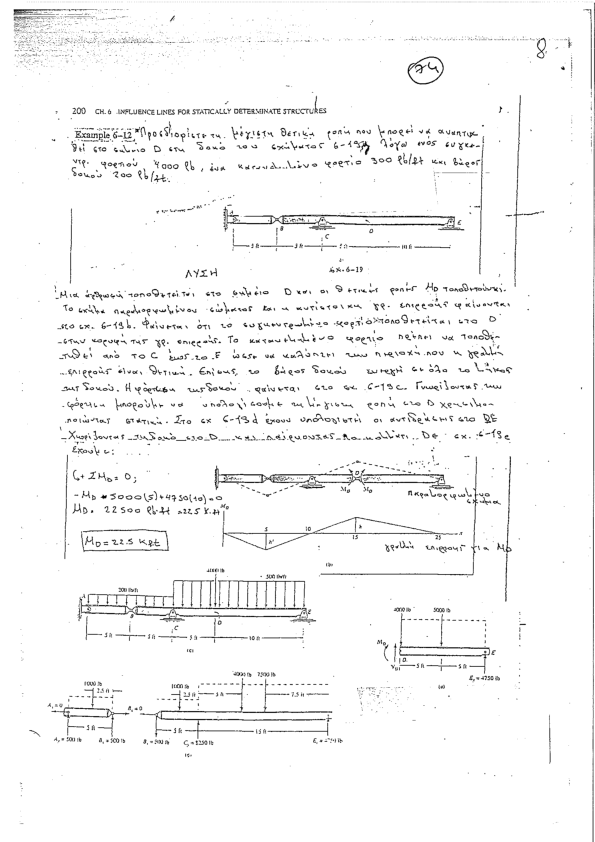 8
74
200 CH. 6 INFLUENCE LINES FOR STATICALLY DETERMINATE STRUCTURES
Example 6-12 Προσδιορίστε τη μέγιστη θετική ροπή που μπορεί να αναπτυχ
θεί στο σημείο D στη δοκό του σχήματος 6-19 λόγω ενός συγκε-
ντρ. φορτίου 4000 lb, ένα κατανεμημένο φορτίο 300 lb/ft και βάρος
δοκού 200 lb/ft.
A
B
C
D
E
5 ft 5 ft 5 ft 10 ft
Σχ. 6-19
ΛΥΣΗ
Μια άρθρωση τοποθετείται στο σημείο D και οι θετικές ροπές MD τοποθετούνται.
Το σχήμα παραμορφωμένου σώματος και η αντίστοιχη γρ. επιρροής φαίνονται
στο σχ. 6-19b. Φαίνεται ότι το συγκεντρωμένο φορτίο τοποθετείται στο D
στην κορυφή της γρ. επιρροής. Το κατανεμημένο φορτίο πρέπει να τοποθε-
τηθεί από το C έως το E ώστε να καλύπτει την περιοχή που η γραμμή
επιρροής είναι θετική. Επίσης το βάρος δοκού ενεργεί σε όλο το μήκος
της δοκού. Η φόρτιση της δοκού φαίνεται στο σχ. 6-19c. Γνωρίζοντας την
φόρτιση μπορούμε να υπολογίσουμε τη μέγιστη ροπή στο D χρησιμο-
ποιώντας στατική. Στο σχ 6-19d έχουν υπολογιστεί οι αντιδράσεις στο BE
Χωρίζοντας τη δοκό στο D και παίρνοντας το κομμάτι DE σχ. 6-19e
έχουμε:
↺+ ΣMD = 0;
-MD - 5000(5) + 4750(10) = 0
MD = 22500 lb·ft = 22.5 k.ft
MD = 22.5 kft
MD MD
παραμορφωμένο
σχήμα
MD
5 10 15 25 x
h' h
γραμμή επιρροής για MD
(b)
4000 lb
200 lb/ft 500 lb/ft
A B C D E
5 ft 5 ft 5 ft 10 ft
(c)
4000 lb 5000 lb
MD
VD D E
5 ft 5 ft
Ey = 4750 lb
(e)
1000 lb
2.5 ft
Ax = 0 Bx = 0
5 ft
Ay = 500 lb By = 500 lb
1000 lb 4000 lb 7500 lb
2.5 ft 5 ft 7.5 ft
5 ft 15 ft
By = 500 lb Ey = 4750 lb